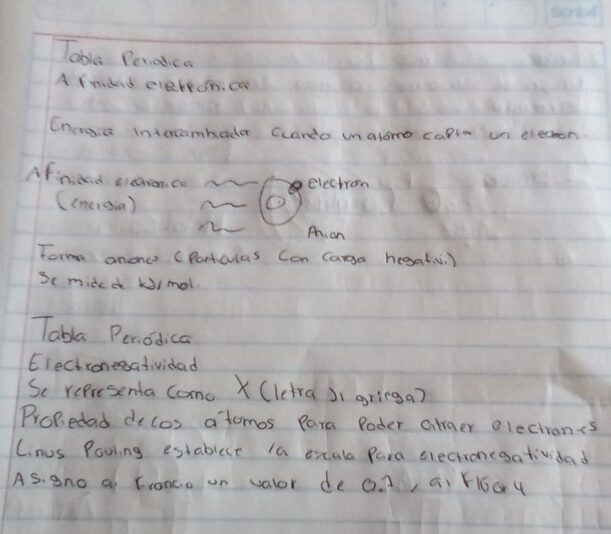 Scribe
Tabla Periodica
Afinidad electronica
Energia intercambiada cuando un atomo capta un electron.
Afinidad electronica
electron
(energia)
Anion
Forma aniones (Particulas con carga negativa)
Se mide KJ/mol.
Tabla Periódica
Electronegatividad
Se representa como X (letra griega)
Propiedad de los átomos para poder atraer electrones
Linus Pauling establece la escala para electronegatividad
Asigno al francio un valor de 0.7, al Flúor 4